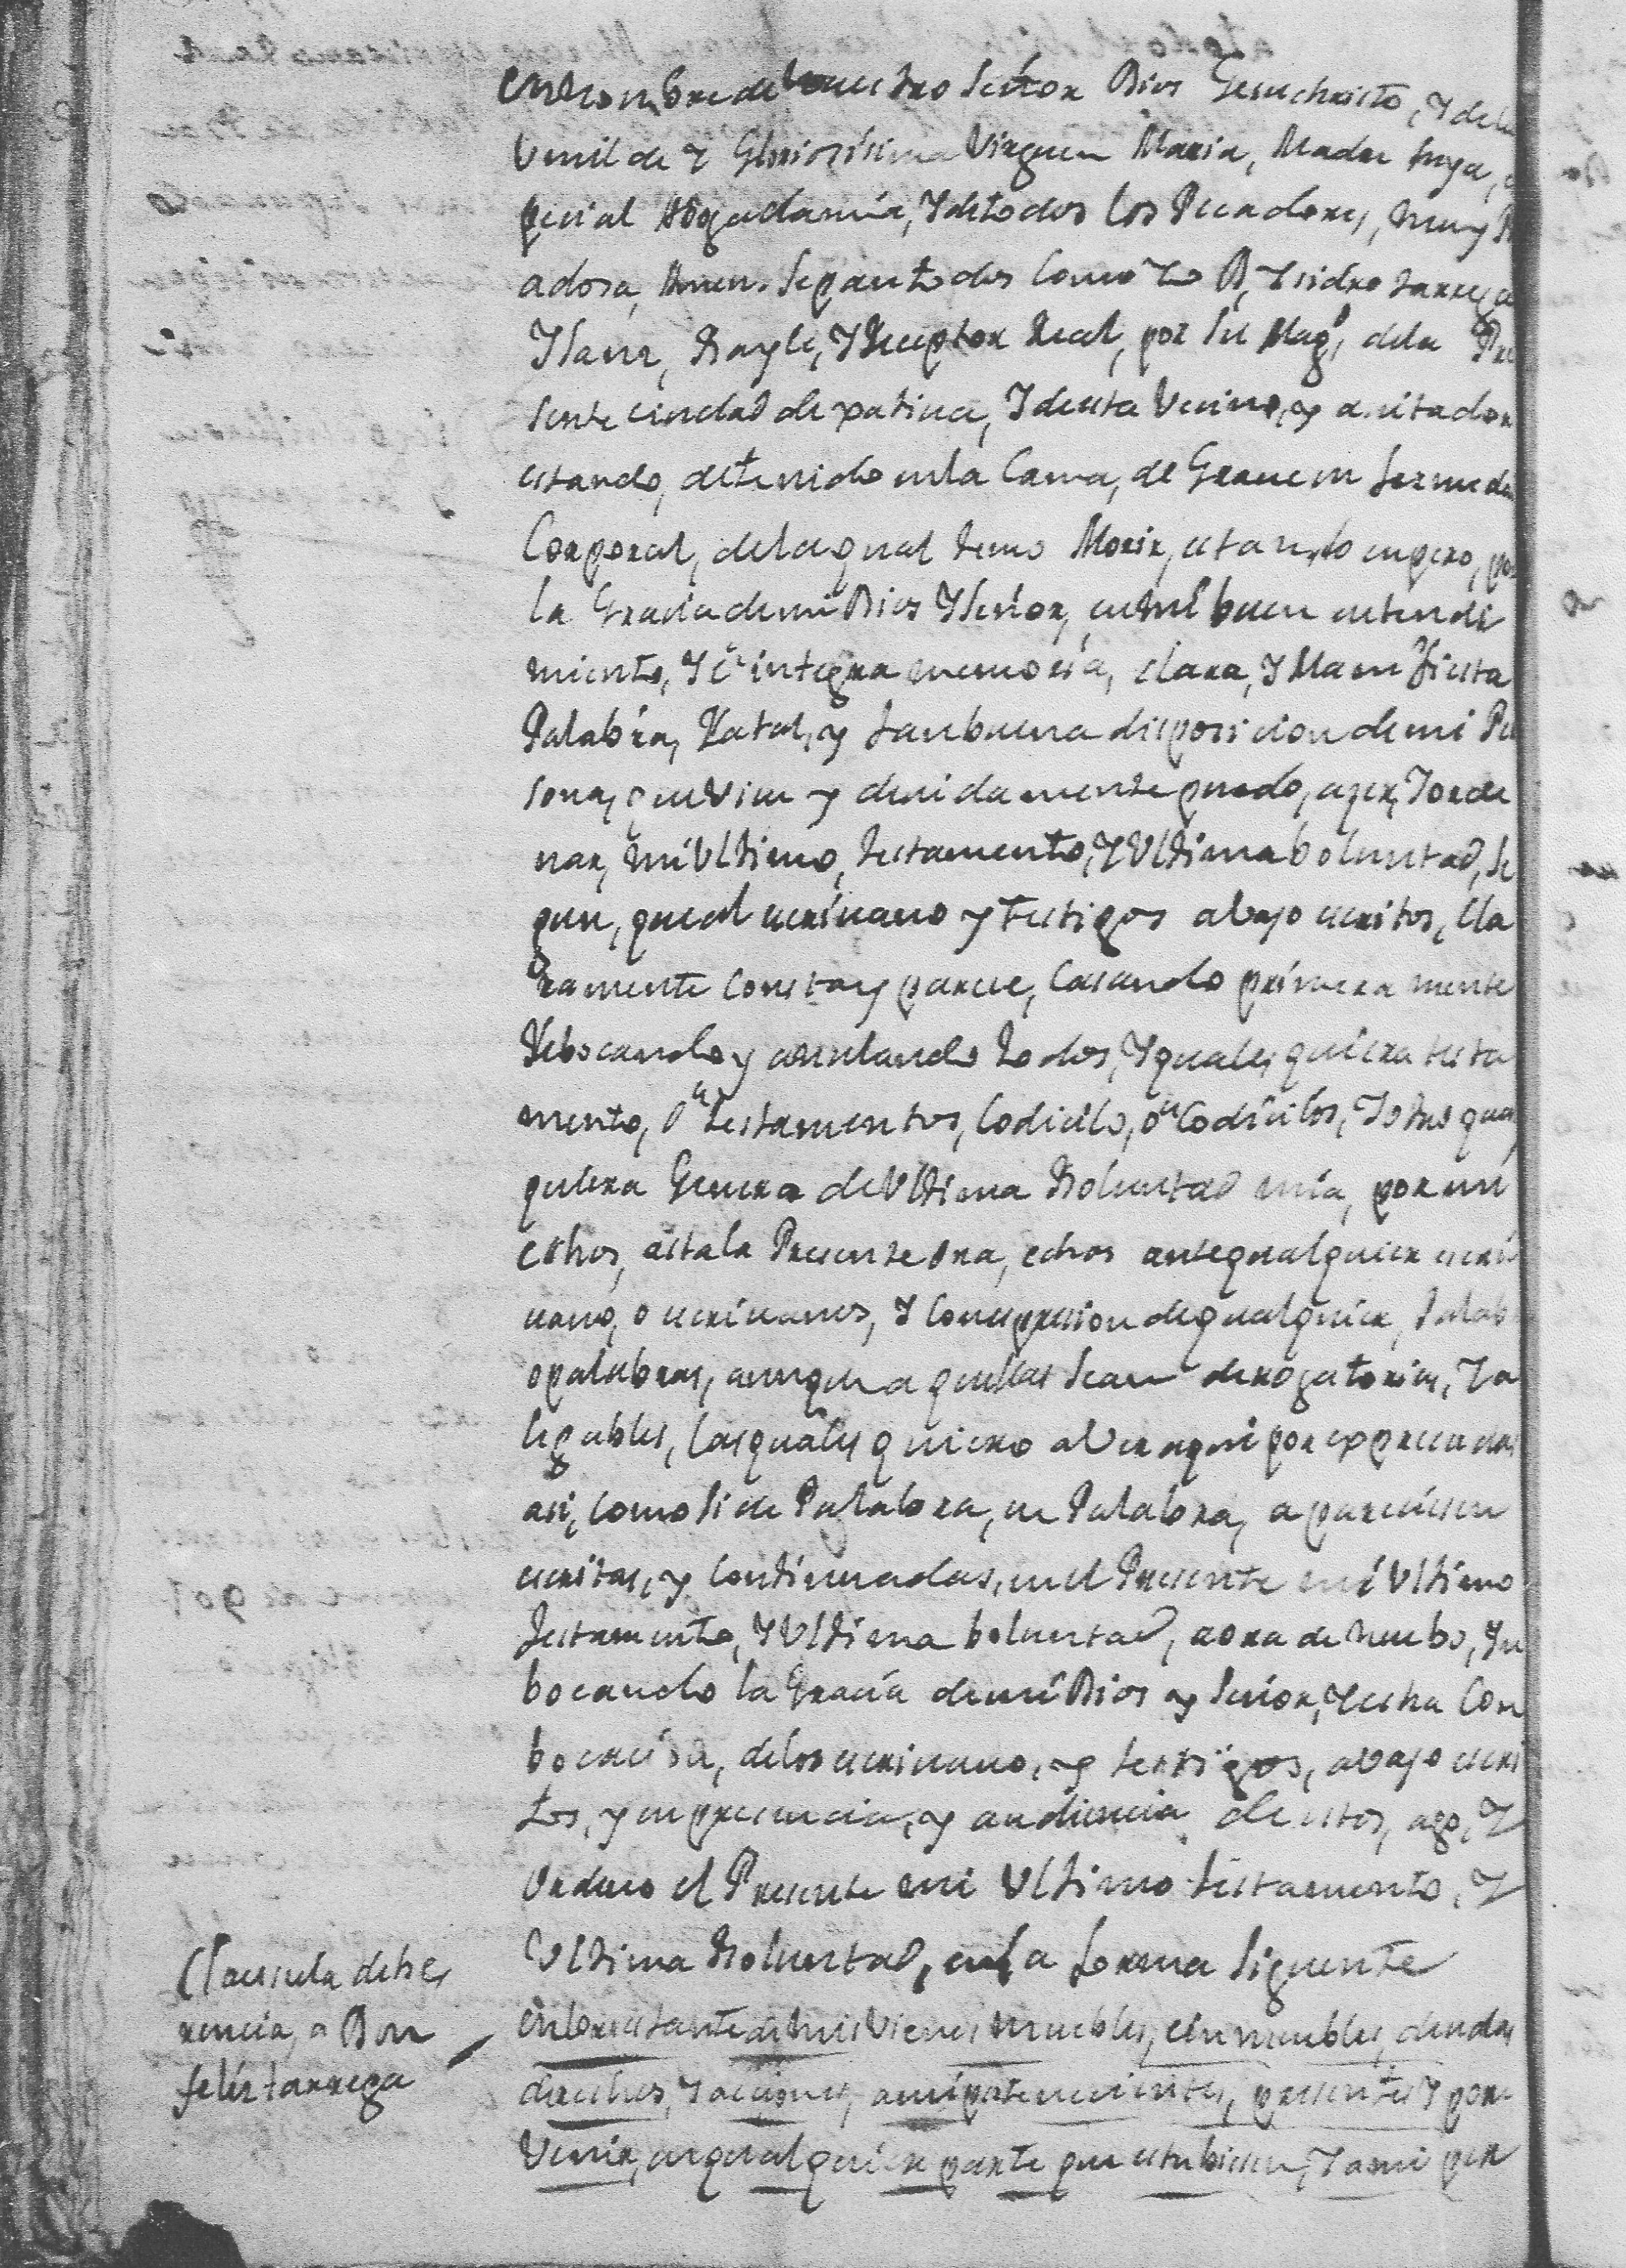 En nombre de nuestro Señor Dios Gesuchristo, Y dela
Vmil de Y Gloriosisima Virguen Maria, Madre suya,
pecial Abogada mia, Y de todos los Pecadores, muy Pi
adosa, Amen. Sepan todos como Yo Dn Ysidro tarrega
Ysanz, Bayle, Y Receptor Real, por su Magd dela Pre
sente ciudad de xativa, Y de esta Vecino, y avitador
estando, detenido en la Cama, de Grave en fermedad
Corporal, dela qual temo Morir, estando enpero, por
la Gracia de mi Dios Y Señor, en mi buen entendi
miento, Y è integra memoria, clara, Y Manifiesta
Palabra, Y atal, y tan buena disposicion de mi Per
sona, que vien y devidamente puedo, azer, Y orde
nar, mi Vltimo, testamento, Y Vltima boluntad, se
gun, que al escrivano y testigos abajo escritos, cla
ramente consta y parece, Casando primera mente
Rebocando y annulando todos, Y quales quiera testa
mento, ò testamentos, Codicilo, ò Codicilos, Y otro qual
quiera Genero de Vltima Boluntad mia, por mi
echos, asta la Presente ora, echos ante qualquier escri
vano, o escrivanos, Y con expresion de qualquier, Palab
o palabras, aunque aquellas sean derogatorias, Y a
legables, las quales quiero aver aqui por expresadas
asi, como si de Palabra, en Palabra, apareciesen
escritas, y continuadas, en el Presente mi Vltimo
testamento, Y Vltima boluntad, aora de nuebo, Yn
bocando la Gracia de mi Dios y Señor, Y echa Con
bocacion, delos escrivano, y testigos, abajo escri
tos, y en presencia, y audiencia de estos, ago, Y
ordeno el Presente mi Vltimo testamento, Y
Vltima Boluntad, en la forma siguente
Clausula de he
rencia, a Don
felis tarrega
en lo restante de mis Vienes muebles, e in muebles, deudas
derechos, Y acciones, ami pertenecientes, presentes Y por
Venir, en qualquiera parte que estubiesen, Y ami per